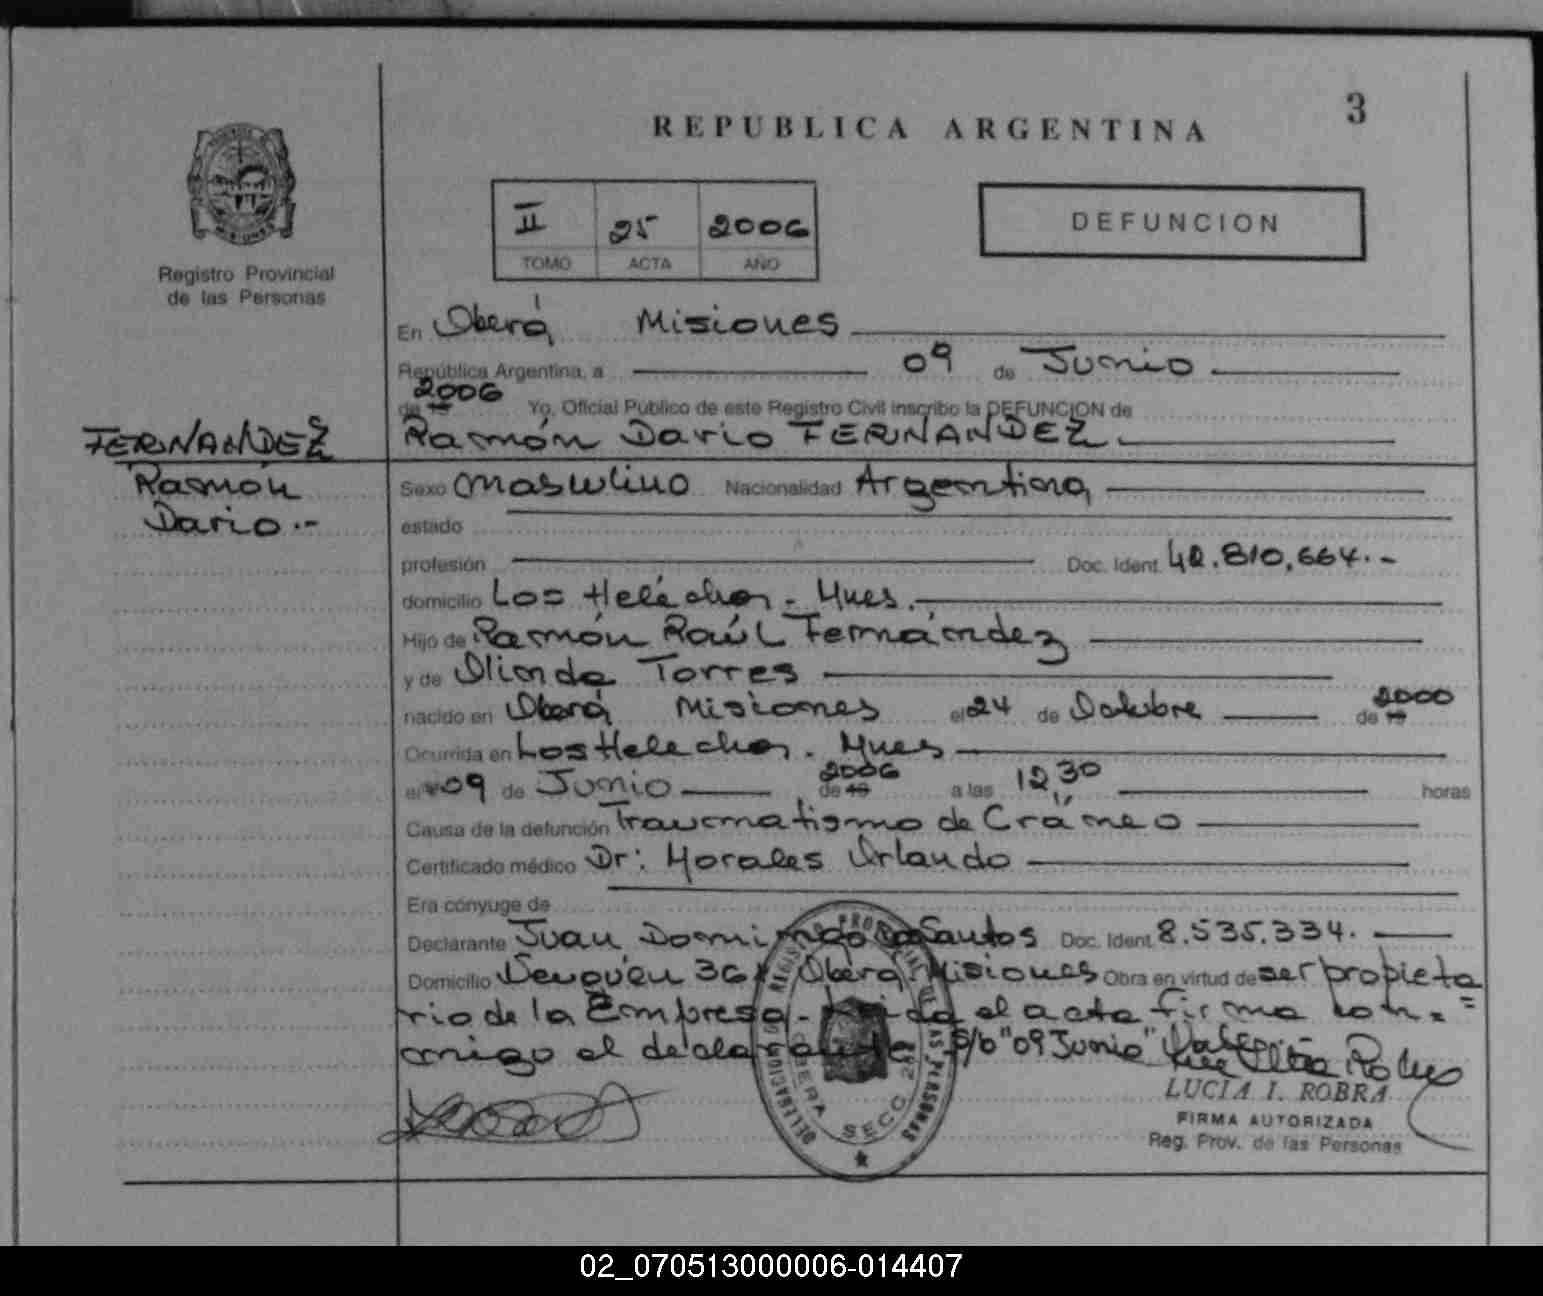 3
REPUBLICA ARGENTINA
MISIONES
Registro Provincial
de las Personas
II 25 2006
TOMO ACTA AÑO
DEFUNCION
En Oberá Misiones
República Argentina, a 09 de Junio
de 19 2006 Yo, Oficial Público de este Registro Civil inscribo la DEFUNCION de
FERNANDEZ
Ramón
Dario.-
Ramón Dario FERNANDEZ
Sexo masculino Nacionalidad Argentina
estado
profesión Doc. Ident. 42.810.664.-
domicilio Los Helechos - Mnes.
Hijo de Ramón Raúl Fernández
y de Olinda Torres
nacido en Oberá Misiones el 24 de Octubre de 19 2000
Ocurrida en Los Helechos - Mnes
el 09 de Junio de 19 2006 a las 12,30 horas
Causa de la defunción Traumatismo de Cráneo
Certificado médico Dr: Morales Orlando
Era cónyuge de
Declarante Juan Domingo Santos Doc. Ident. 8.535.334.
Domicilio Oberá Misiones Obra en virtud de ser propieta
rio de la Empresa - Leida el acta firma con=
migo el declarante. S/b "09 Junio" Vale
LUCIA I. ROBRA
FIRMA AUTORIZADA
Reg. Prov. de las Personas
DELEGACION DE REGISTRO PROVINCIAL DE LAS PERSONAS
OBERA SECC 2ª
02_070513000006-014407